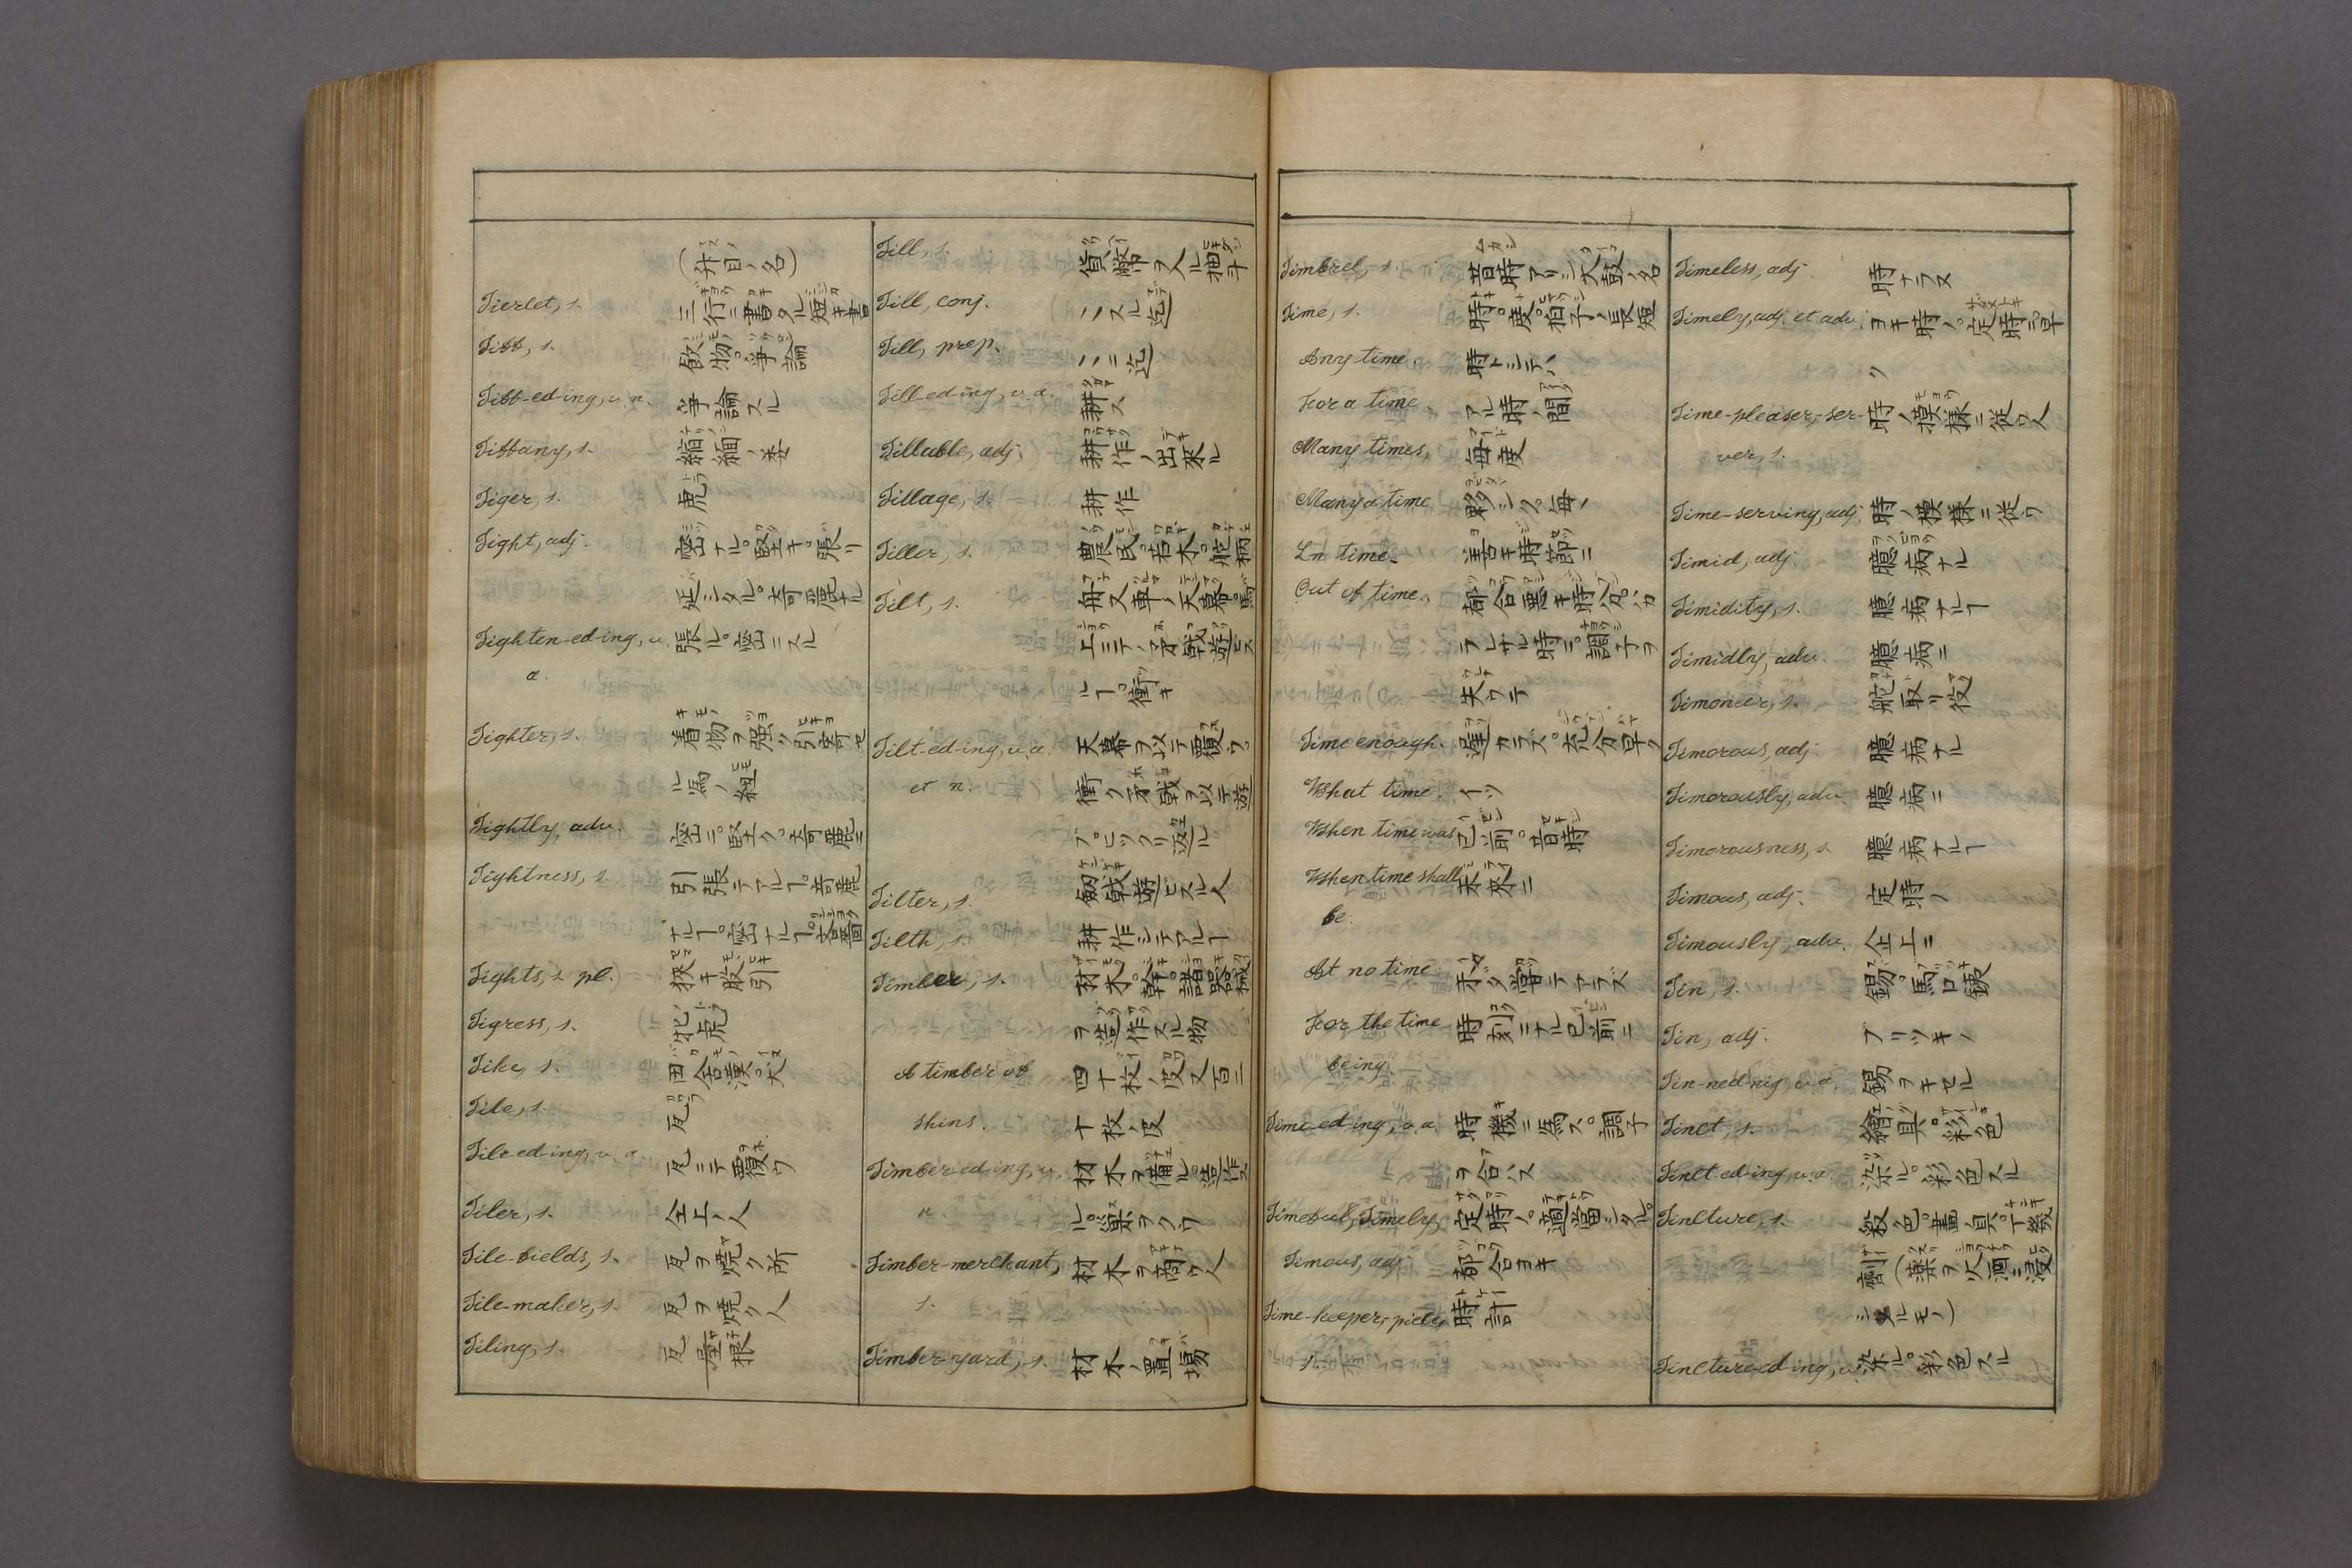 (舛目ノ名)
Tierlet, s. 三行ニ書タル短キ書
Tiff, s. 飲物。爭論
Tiff-ed-ing, v. n. 爭論スル
Tiffany, s. 縮緬ノ類
Tiger, s. 虎
Tight, adj. 密ナル。堅キ。張リ
延シタル。奇麗ナル
Tighten-ed-ing, v. 張ル。密ニスル
a.
Tighter, s. 着物ヲ強ク引寄セ
ル馬ノ紐
Tightly, adv. 密ニ。堅ク。奇麗ニ
Tightness, s. 引張テアルヿ。奇麗
ナルヿ。密ナルヿ。吝嗇
Tights, s. pl. 狹キ股引
Tigress, s. 牝虎
Tike, s. 田舎漢。犬
Tile, s. 瓦
Tile-ed-ing, v. a. 瓦ニテ覆フ
Tiler, s. 仝上ノ人
Tile-fields, s. 瓦ヲ燒ク所
Tile-maker, s. 瓦ヲ燒ク人
Tiling, s. 瓦屋根
Till, s. 貨幣ヲ入ル抽斗
Till, conj. 〻スル迄
Till, prep. 〻ニ迄
Till-ed-ing, v. a. 耕ス
Tillable, adj. 耕作ノ出來ル
Tillage, s. 耕作
Tiller, s. 農民。若木。舵柄
Tilt, s. 舟又車ノ天幕。馬
上ニテノ矛戟遊ビス
ルヿ。衝キ
Tilt-ed-ing, v. a. 天幕ヲ以テ覆フ。
et n. 衝ク。矛戟ヲ以テ遊
ブ。ヒツクリ返ル
Tilter, s. 劔戟遊ビスル人
Tilth, s. 耕作シテアルヿ
Timber, s. 材木。幹。諸器械
ヲ造作スル物
A timber of 四十枚ノ皮又百二
skins. 十枚ノ皮
Timber-ed-ing, v. 材木ヲ備ル。造作ス
n. ル。巢ヲクフ
Timber-merchant, 材木ヲ商フ人
s.
Timber-yard, s. 材木ノ置場
Timbrel, s. 昔時アリシ大鼓ノ名
Time, s. 時。度。拍子ノ長短
Any time. 時トシテハ
For a time. アル時ノ間
Many times. 毎度
Many a time 夥シク。毎〻
In time. 善キ時節ニ
Out of time. 都合悪キ時分。分カ
ラレザル時ニ。調子ヲ
失フテ
Time enough. 遲カラズ。充分早ク
What time. イツ
When time was 已前。昔時
When time shall 未來ニ
be.
At no time 不少。嘗テアラズ
For the time 時刻ニナル已前ニ
being.
Time-ed-ing, v. a. 時機ニ爲ス。調子
ヲ合ハス
Timeful, Timely, 定時ノ。適當シタル。
Timous, adj. 都合ヨキ
Time-keeper,-piece, 時計
s.
Timeless, adj. 時ナラヌ
Timely, adj. et adv. ヲキ時ノ。定時ニ。早
ク
Time-pleaser,-ser- 時ノ模様ニ從フ人
ver, s.
Time-serving, adj. 時ノ模様ニ從フ
Timid, adj. 臆病ナル
Timidity, s. 臆病ナルヿ
Timidly, adv. 臆病ニ
Timoneer, s. 舵取リ役
Timorous, adj. 臆病ナル
Timorously, adv. 臆病ニ
Timorousness, s. 臆病ナルヿ
Timous, adj. 定時ノ
Timously, adv. 仝上ニ
Tin, s. 錫。馬口鐵
Tin, adj. ブリツキノ
Tin-ned-nig, v. a. 錫ヲキセル
Tinct, s. 繪具。彩色
Tinct-ed-ing, v. a. 染ル。彩色スル
Tincture, s. 彩色。畫具。丁幾
劑(藥ヲ火酒ニ浸
シタルモノ)
Tincture-ed-ing, v. 染ル。彩色スル